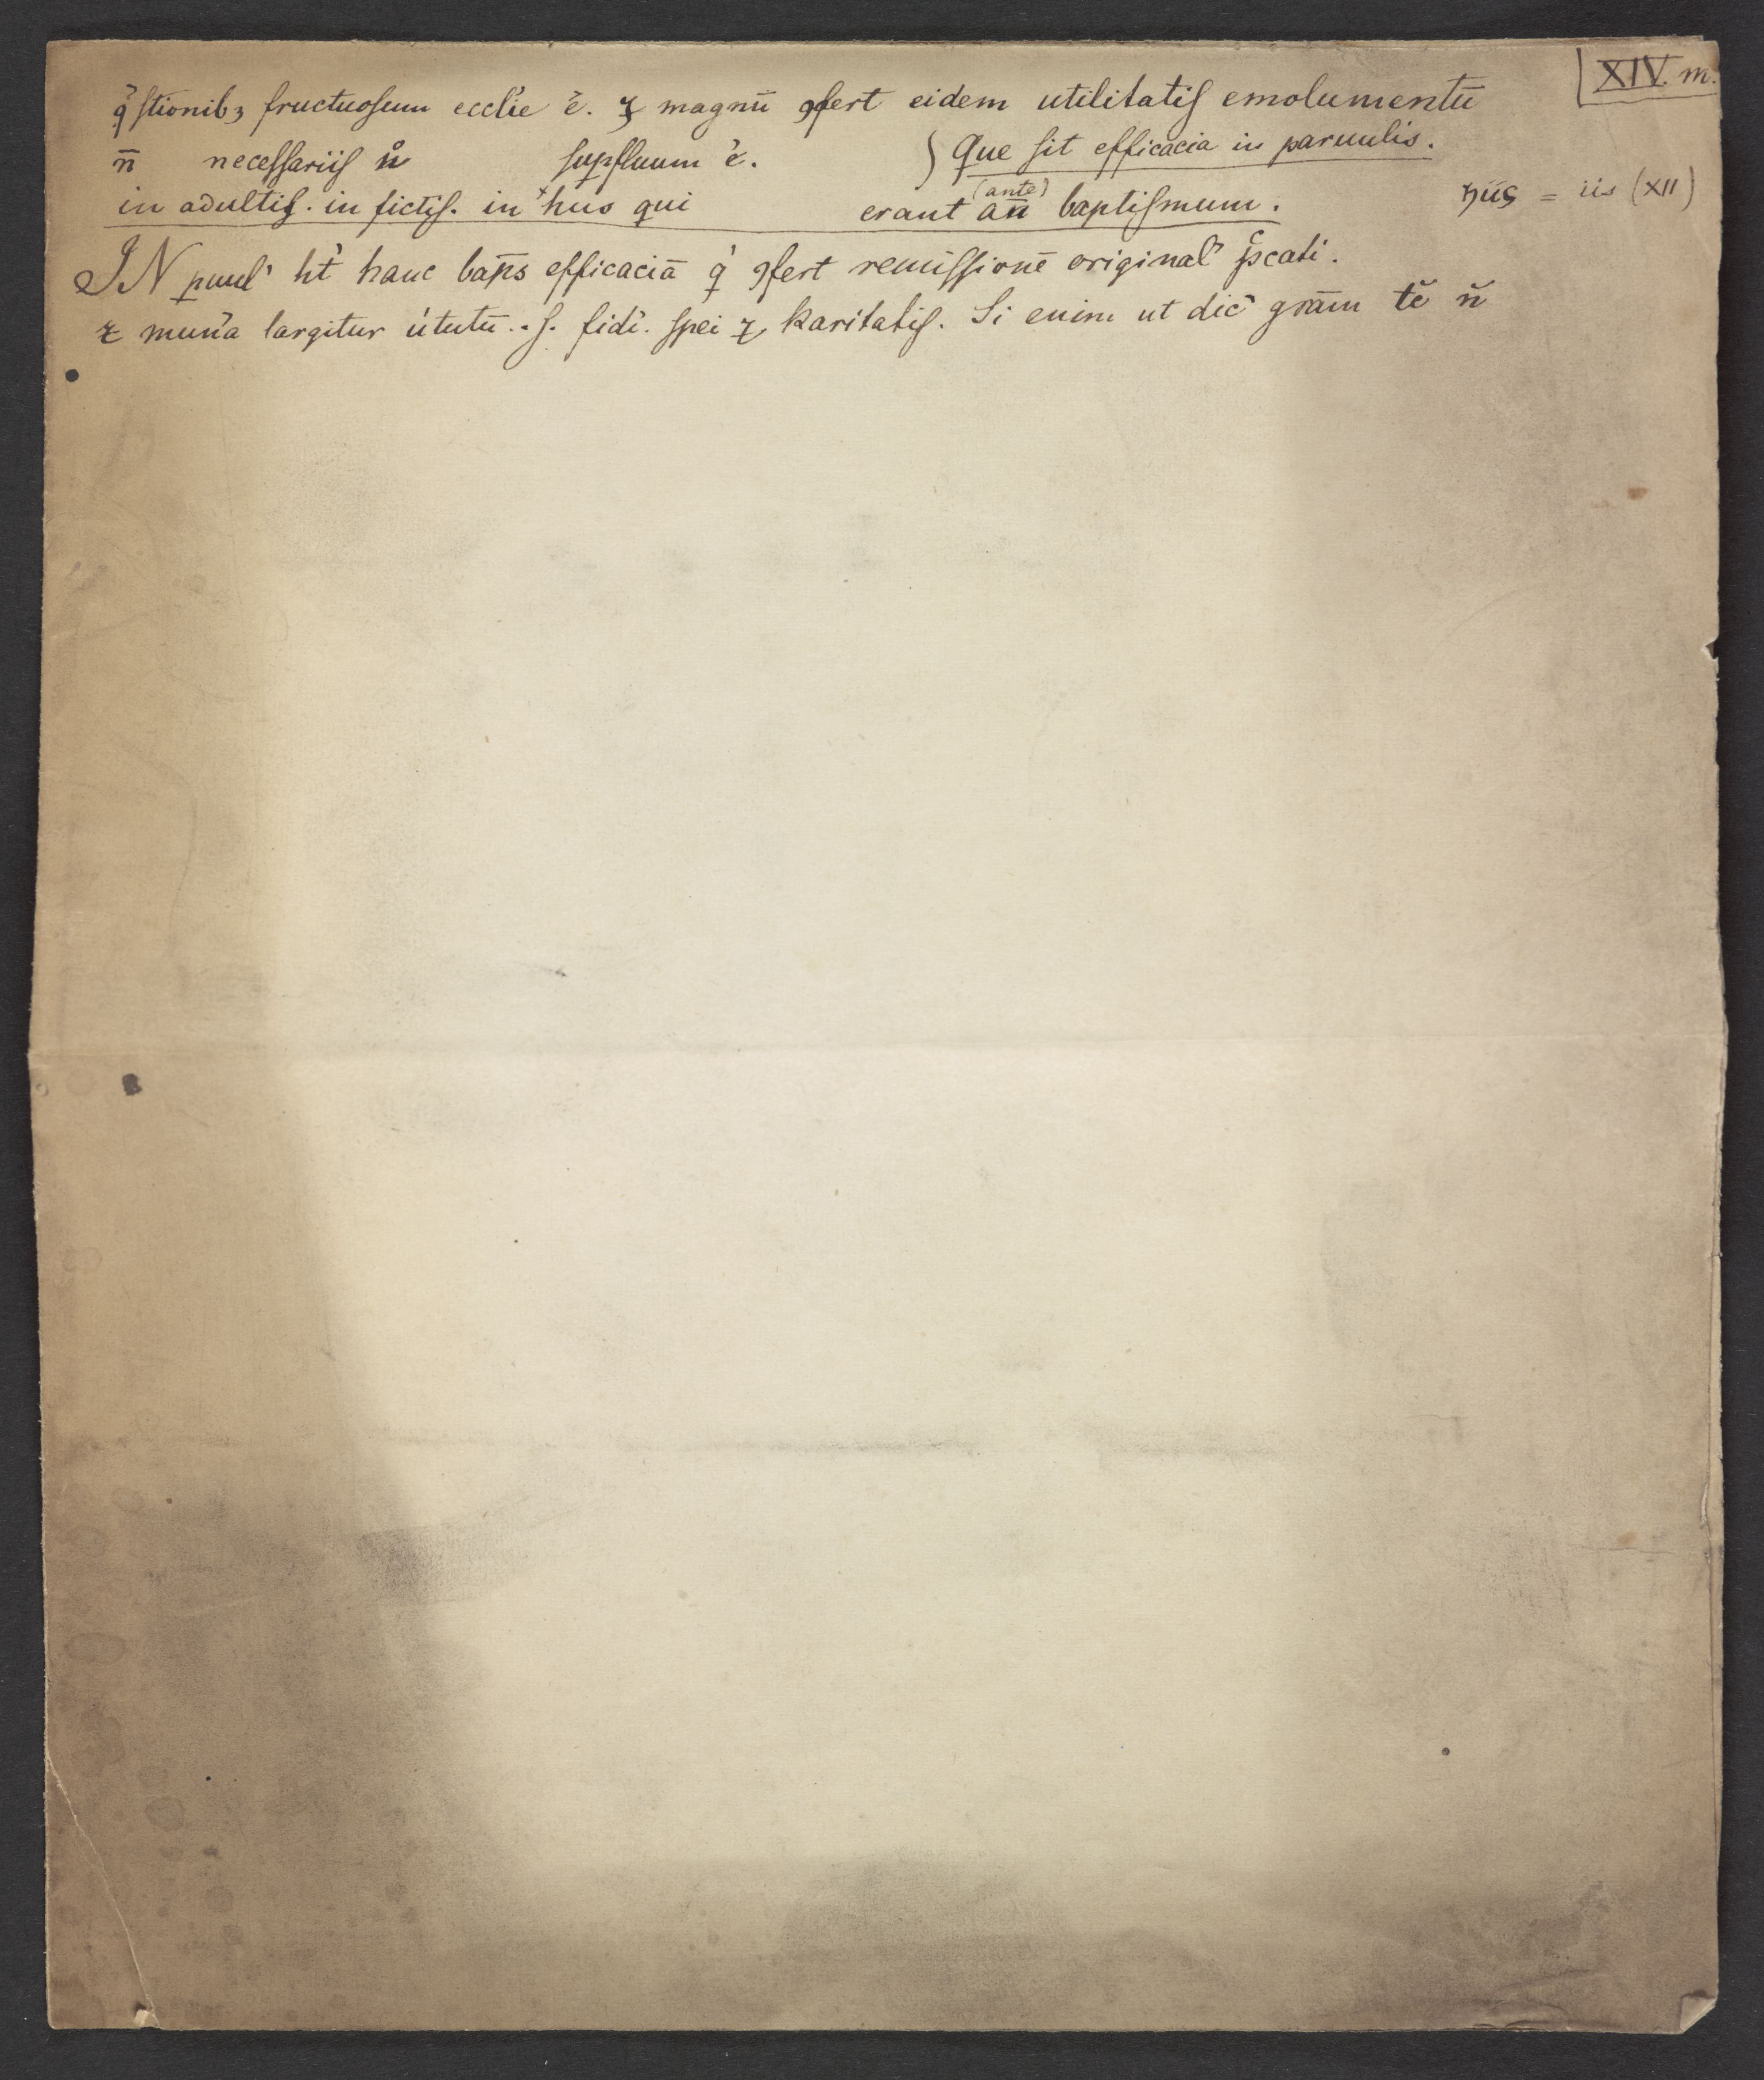 XIV. m.
q̄stionibꝫ fructuoſum eccl̄ie ē. ⁊ magnū ꝯfert eidem utilitatiſ emolumentū
n̄ neceſſariiſ n̊ ſuꝑfluum ē. Que ſit efficacia in paruulis.
in adultiſ. in fictiſ. in hiis qui erant an̄ (ante) baptiſmum. hiis = iis (XII)
IN ꝑuul' h̄t hanc bap̄s efficaciā q̇ ꝯfert remiſſionē original' pͨcati.
⁊ mun̄a largitur u̇tutū. .ſ. fidi. ſpei ⁊ karitatiſ. Si enim ut dic̄ gr̄am tc̄ n̄